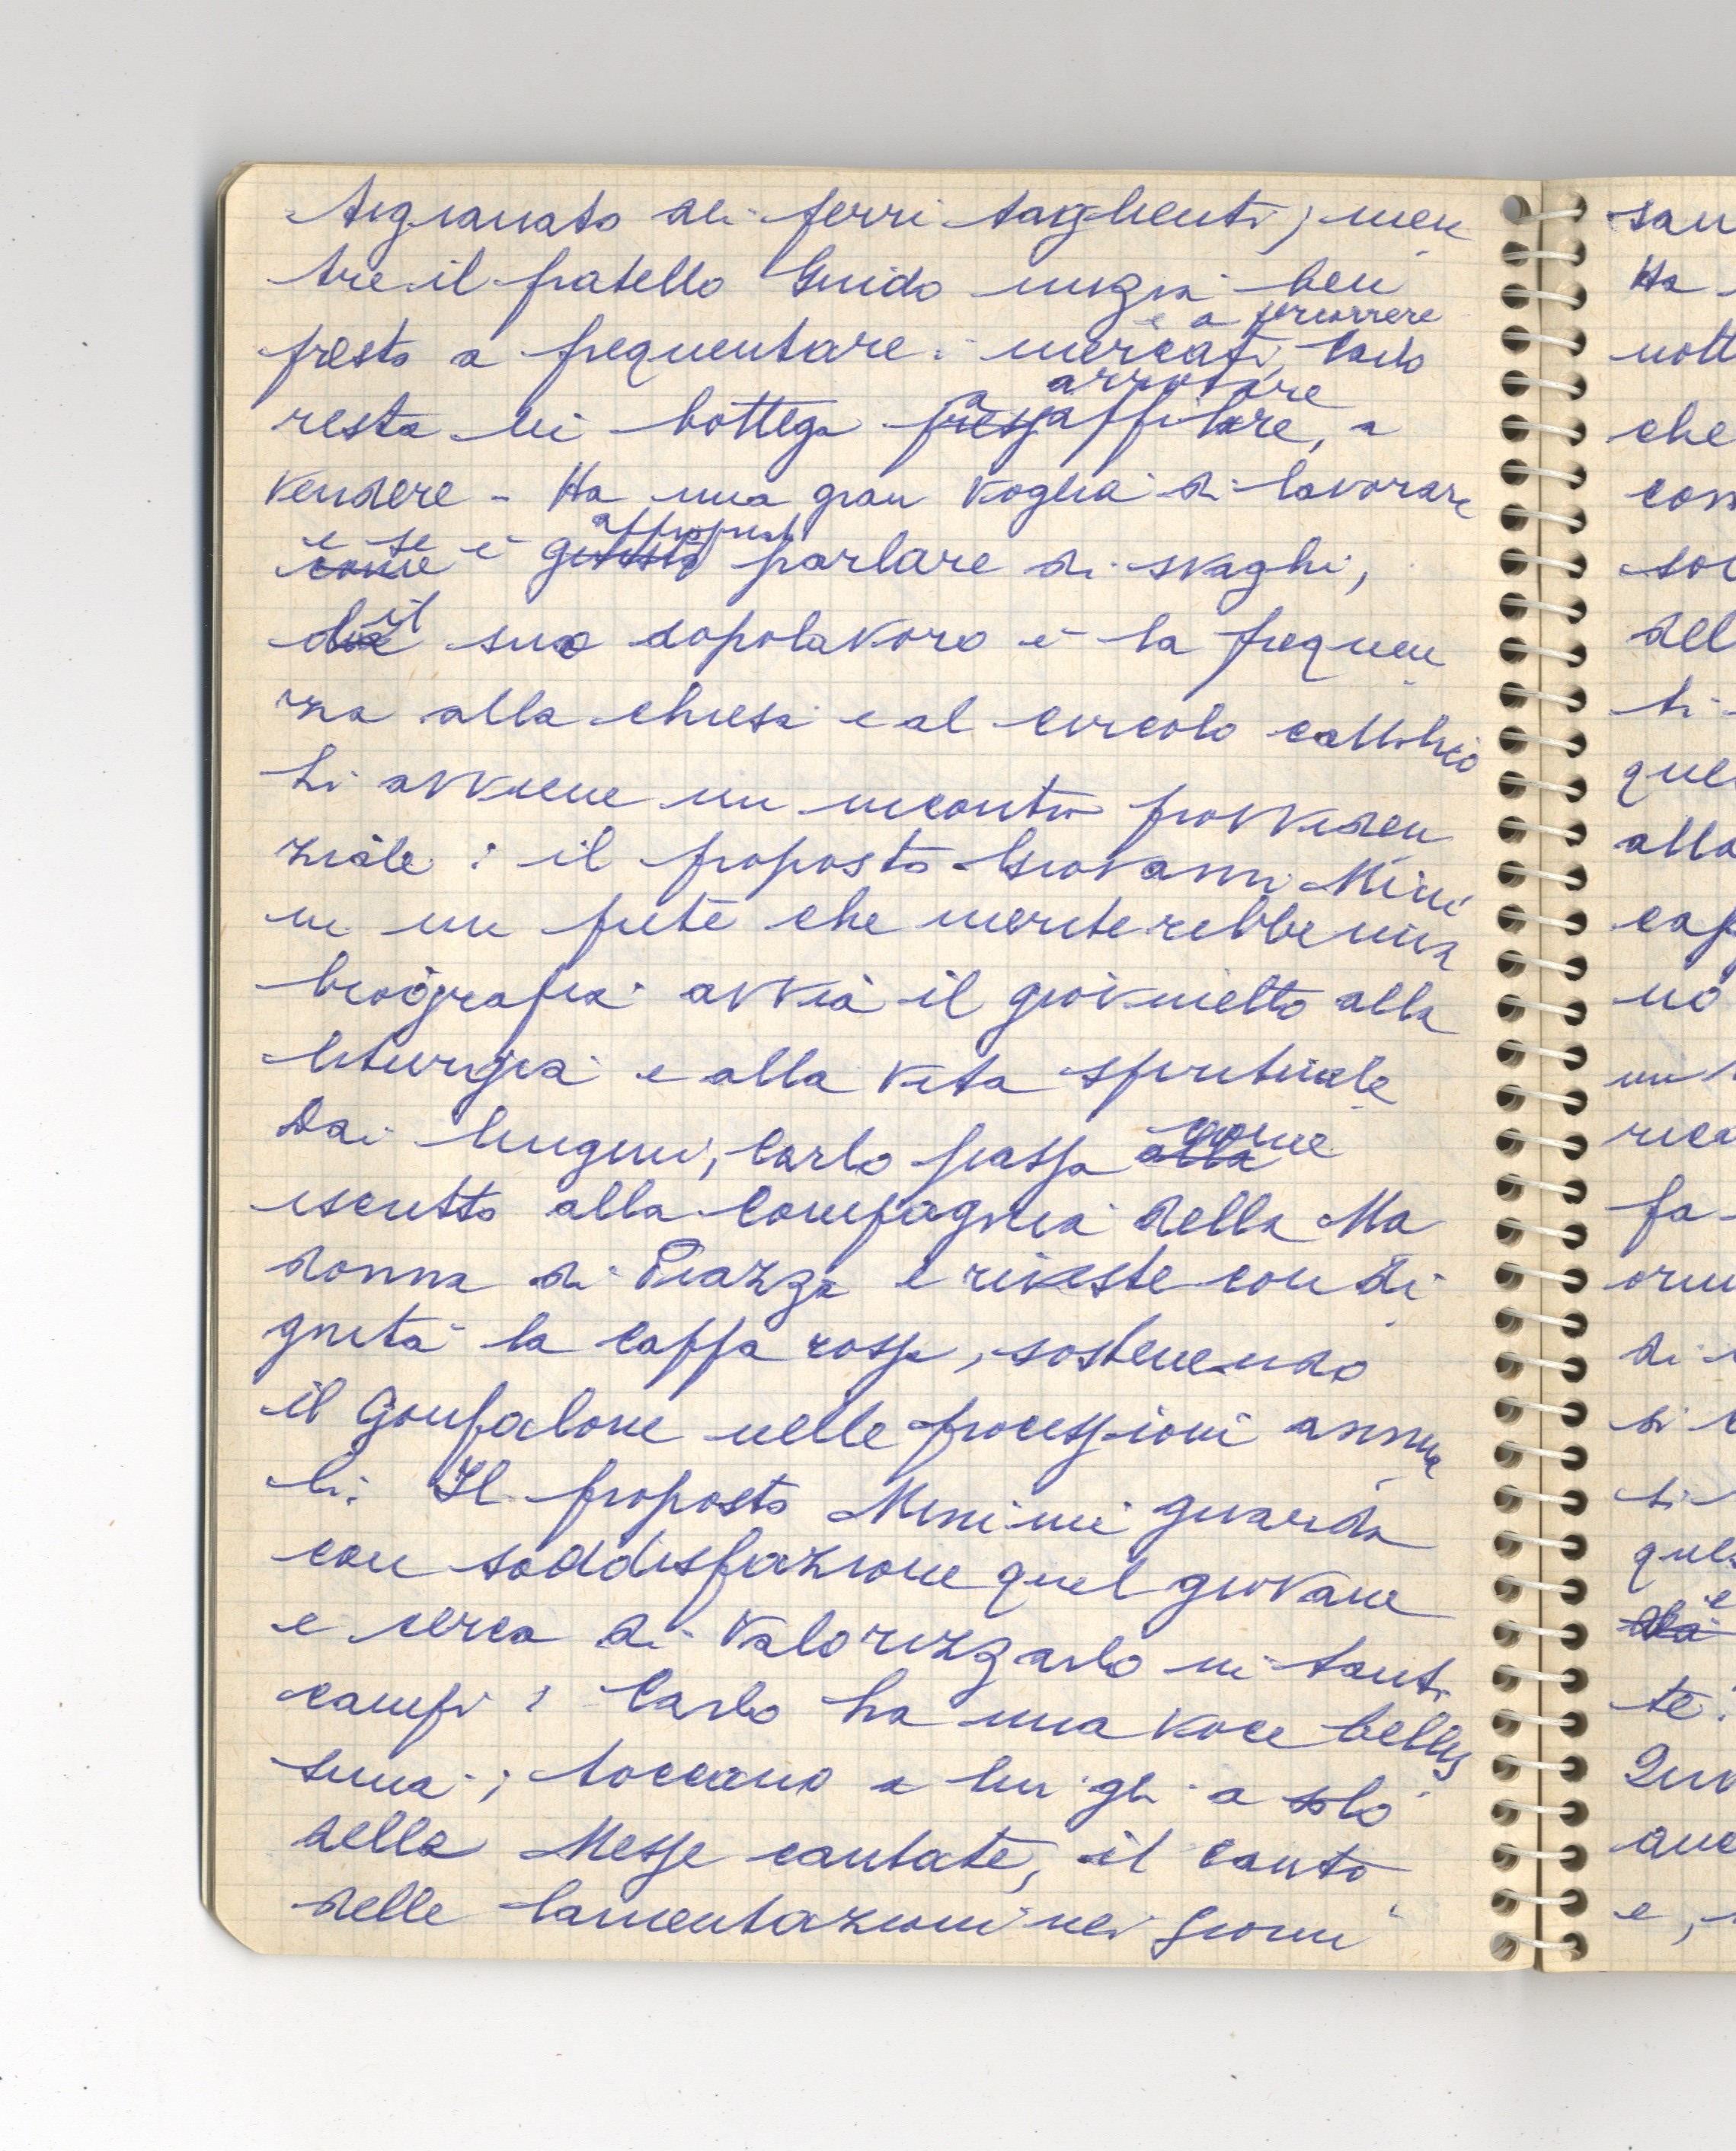 tigianato dei ferri taglienti, men
tre il fratello Guido inizia ben
presto a frequentare i mercati, e a percorrere Carlo
resta in bottega a affilare, arrotare, a
vendere - Ha una gran voglia di lavorare
e se è appropriato parlare di svaghi,
il suo dopolavoro è la frequen
za alla chiesa e al circolo cattolico
Lì avviene un incontro provviden
ziale: il proposto Giovanni Mini
ni un prete che meriterebbe una
biografia avvia il giovinetto alla
liturgia e alla vita spirituale
Dai Luigini, Carlo passa come
iscritto alla Compagnia della Ma
donna di Piazza e riveste con di
gnità la cappa rossa, sostenendo
il Gonfalone nelle processioni annua
li. Il proposto Minini guarda
con soddisfazione quel giovane
e cerca di valorizzarlo in tanti
campi: Carlo ha una voce bellis
sima; toccano a lui gli a solo
della Messe cantate, il canto
delle lamentazioni nei giorni
san
Ha
nott
che
con
del
que
alla
cap
no
un
rica
fa
di
te.
e,